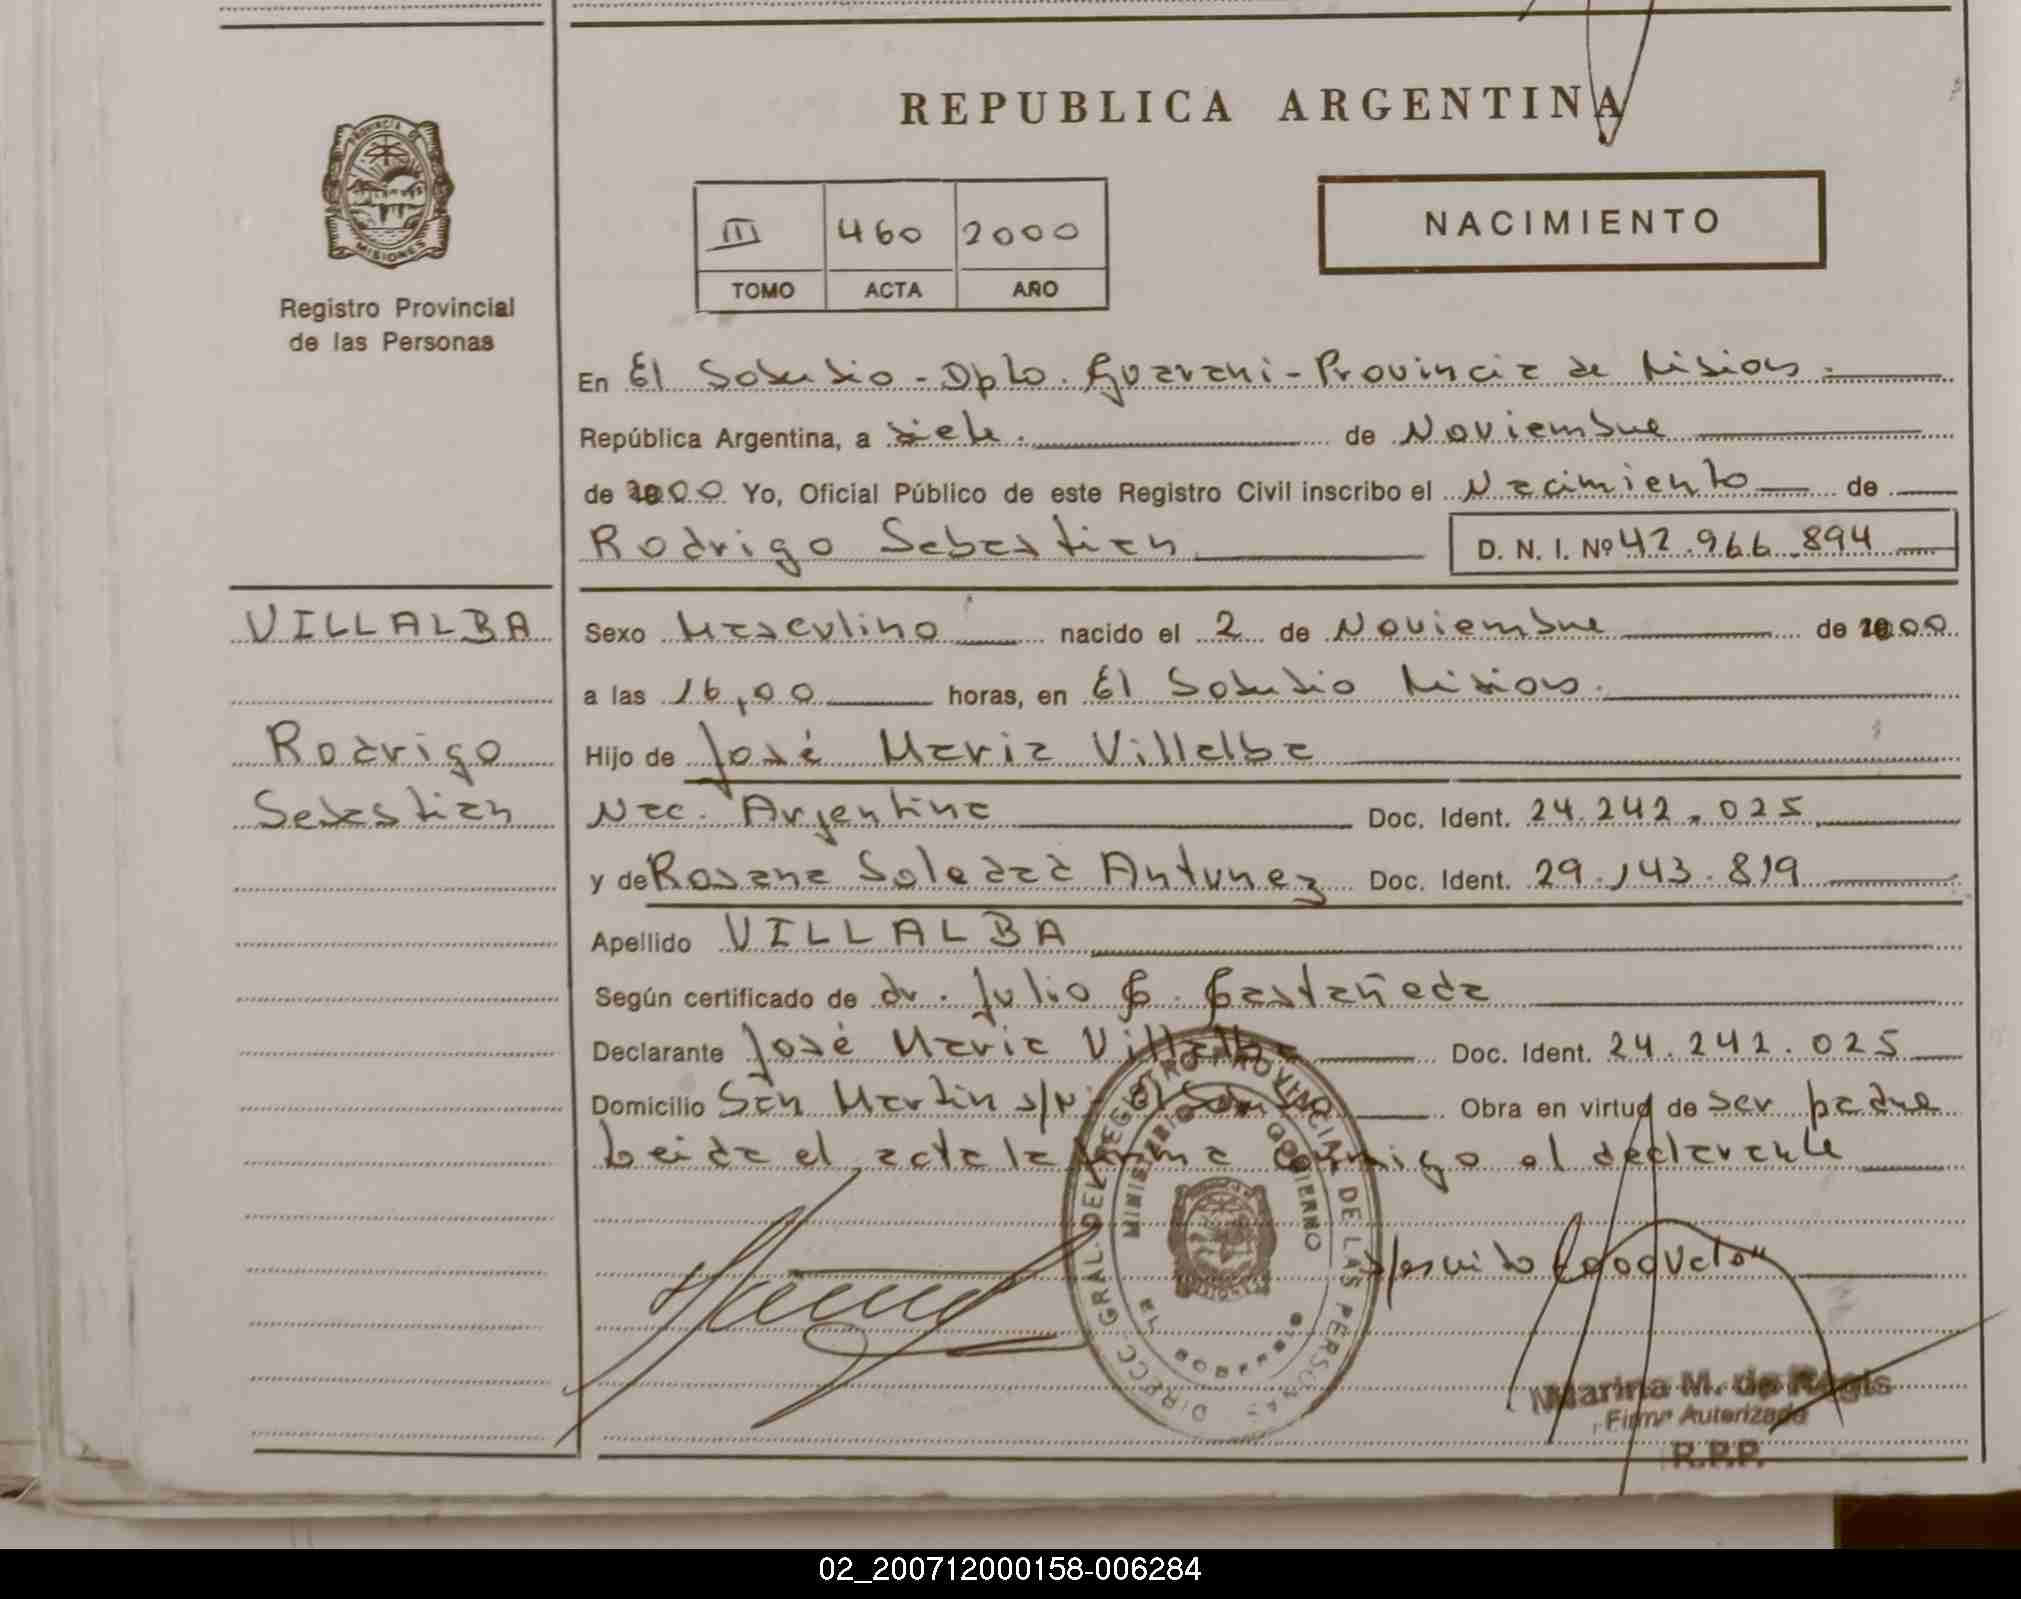 REPUBLICA ARGENTINA
PROVINCIA DE
MISIONES
Registro Provincial
de las Personas
III 460 2000
TOMO ACTA AÑO
NACIMIENTO
En El Soberbio - Dpto. Guarani - Provincia de Misiones.
República Argentina, a siete. de Noviembre
de 2000 Yo, Oficial Público de este Registro Civil inscribo el Nacimiento de
Rodrigo Sebastian D. N. I. Nº 42.966.894
VILLALBA
Rodrigo
Sebastian
Sexo Masculino nacido el 2 de Noviembre de 2000
a las 16,00 horas, en El Soberbio Misiones.
Hijo de José Maria Villalba
Nac. Argentina Doc. Ident. 24.242.025
y de Rosana Soledad Antunez Doc. Ident. 29.143.819
Apellido VILLALBA
Según certificado de dr. Julio C. Castañeda
Declarante José Maria Villalba Doc. Ident. 24.242.025
Domicilio San Martin s/Nº El Sob. Obra en virtud de ser padre
Leida el acta la firma conmigo el declarante
DIRECC. GRAL. DEL REGISTRO PROVINCIAL DE LAS PERSONAS
MINISTERIO DE GOBIERNO
EL SOBERBIO
Marina M. de Regis
Firma Autorizada
R.P.P.
02_200712000158-006284